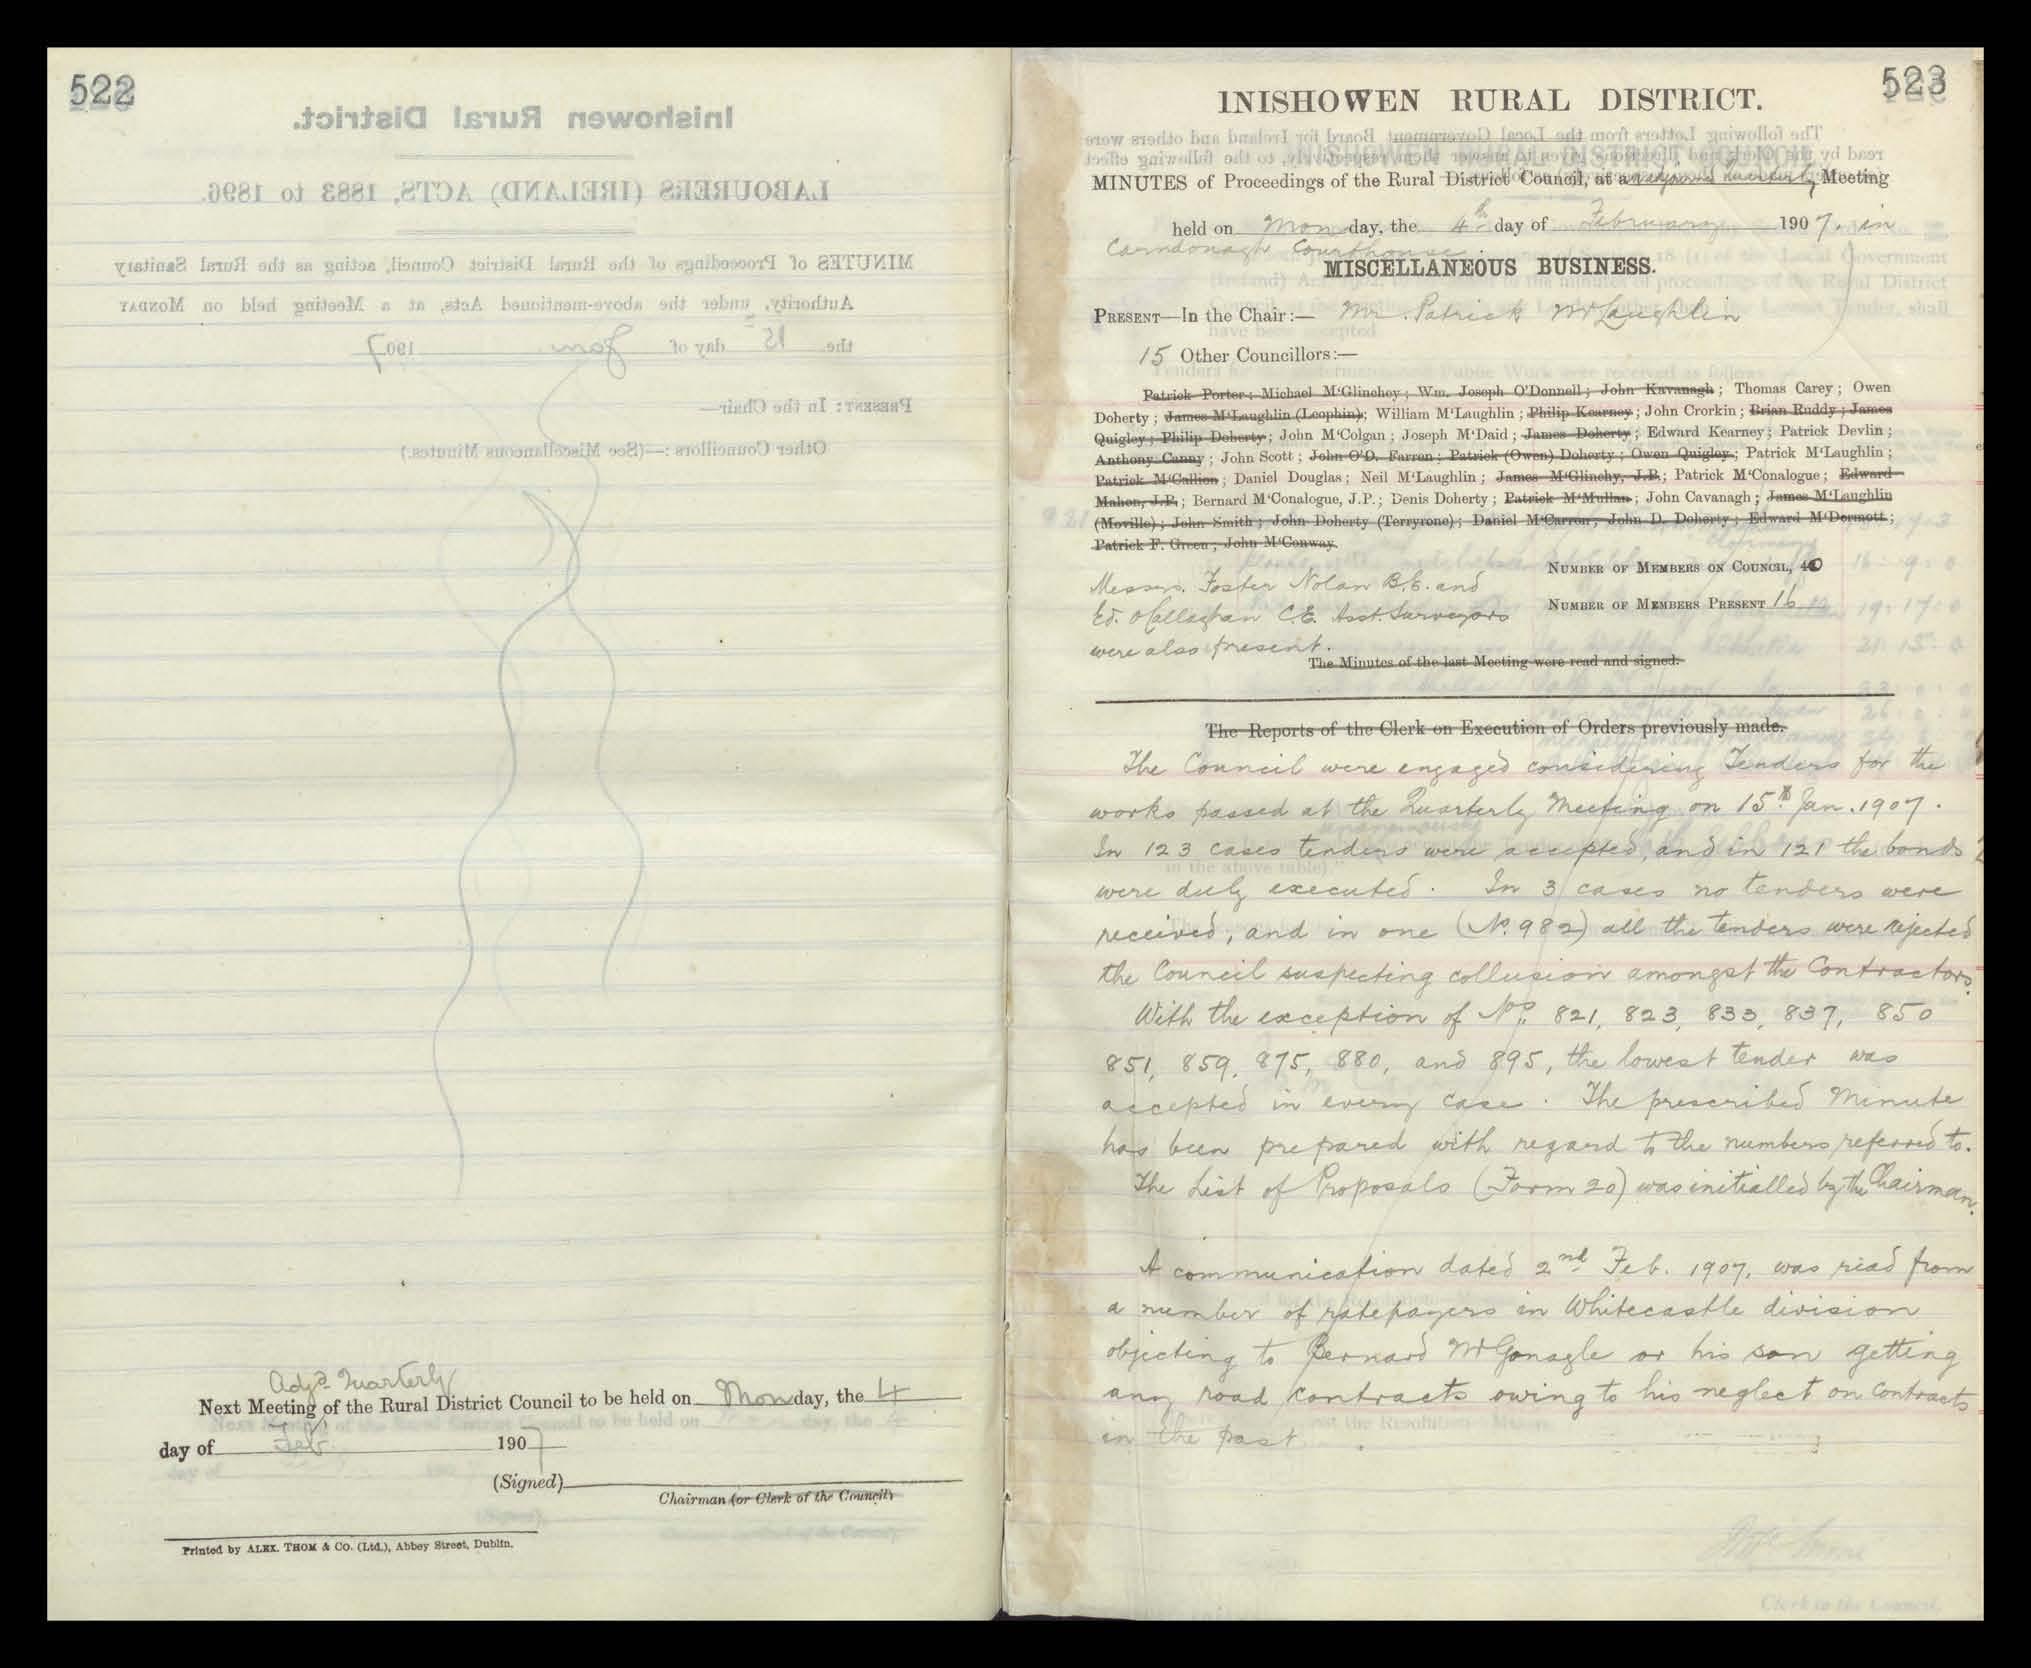 522
Adjd. Quarterly
Next Meeting of the Rural District Council to be held on Monday, the 4
day of Feb. 1907
(Signed)
Chairman (or Clerk of the Council)
Printed by ALEX. THOM & CO. (Ltd.), Abbey Street, Dublin.
523
INISHOWEN RURAL DISTRICT.
MINUTES of Proceedings of the Rural District Council, at an adjourned Quarterly Meeting
held on Monday, the 4th day of February 1907. in
Carndonagh Courthouse.
MISCELLANEOUS BUSINESS.
PRESENT—In the Chair:— Mr. Patrick McLaughlin
15 Other Councillors:—
Patrick Porter; Michael M'Glinchey; Wm. Joseph O'Donnell; John Kavanagh; Thomas Carey; Owen
Doherty; James M'Laughlin (Leophin); William M'Laughlin; Philip Kearney; John Crorkin; Brian Ruddy; James
Quigley; Philip Doherty; John M'Colgan; Joseph M'Daid; James Doherty; Edward Kearney; Patrick Devlin;
Anthony Canny; John Scott; John O'D. Farren; Patrick (Owen) Doherty; Owen Quigley; Patrick M'Laughlin;
Patrick M'Callion; Daniel Douglas; Neil M'Laughlin; James M'Glinchy, J.P.; Patrick M'Conalogue; Edward
Mahon, J.P.; Bernard M'Conalogue, J.P.; Denis Doherty; Patrick M'Mullan; John Cavanagh; James M'Laughlin
(Moville); John Smith; John Doherty (Terryrone); Daniel M'Carron; John D. Doherty; Edward M'Dermott;
Patrick F. Green; John M'Conway.
NUMBER OF MEMBERS ON COUNCIL, 40
Messrs. Foster Nolan B.E. and
NUMBER OF MEMBERS PRESENT 16
Ed. O'Callaghan C.E. Asst. Surveyors
were also present.
The Minutes of the last Meeting were read and signed.
The Reports of the Clerk on Execution of Orders previously made.
The Council were engaged considering Tenders for the
works passed at the Quarterly Meeting on 15th Jan. 1907.
In 123 cases tenders were accepted, and in 121 the bonds
were duly executed. In 3 cases no tenders were
received, and in one (No. 982) all the tenders were rejected
the Council suspecting collusion amongst the Contractors.
With the exception of Nos. 821, 823, 833, 837, 850
851, 859, 875, 880, and 895, the lowest tender was
accepted in every case. The prescribed Minute
has been prepared with regard to the numbers referred to.
The List of Proposals (Form 20) was initialled by the Chairman.
A communication dated 2nd Feb. 1907, was read from
a number of ratepayers in Whitecastle division
objecting to Bernard McGonagle or his son getting
any road contracts owing to his neglect on contracts
in the past.